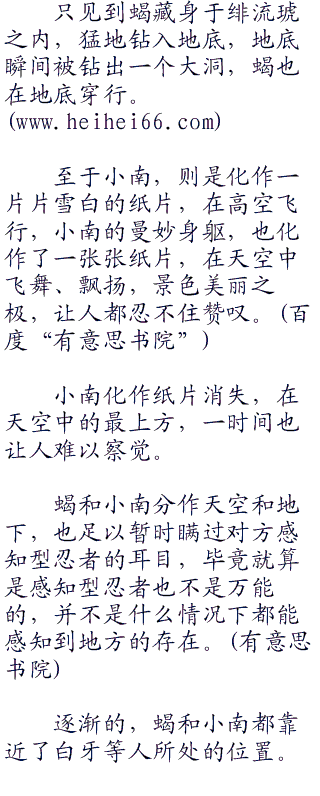 只见到蝎藏身于绯流琥
之内，猛地钻入地底，地底
瞬间被钻出一个大洞，蝎也
在地底穿行。
(www.heihei66.com)
至于小南，则是化作一
片片雪白的纸片，在高空飞
行，小南的曼妙身躯，也化
作了一张张纸片，在天空中
飞舞、飘扬，景色美丽之
极，让人都忍不住赞叹。(百
度“有意思书院”)
小南化作纸片消失，在
天空中的最上方，一时间也
让人难以察觉。
蝎和小南分作天空和地
下，也足以暂时瞒过对方感
知型忍者的耳目，毕竟就算
是感知型忍者也不是万能
的，并不是什么情况下都能
感知到地方的存在。(有意思
书院)
逐渐的，蝎和小南都靠
近了白牙等人所处的位置。